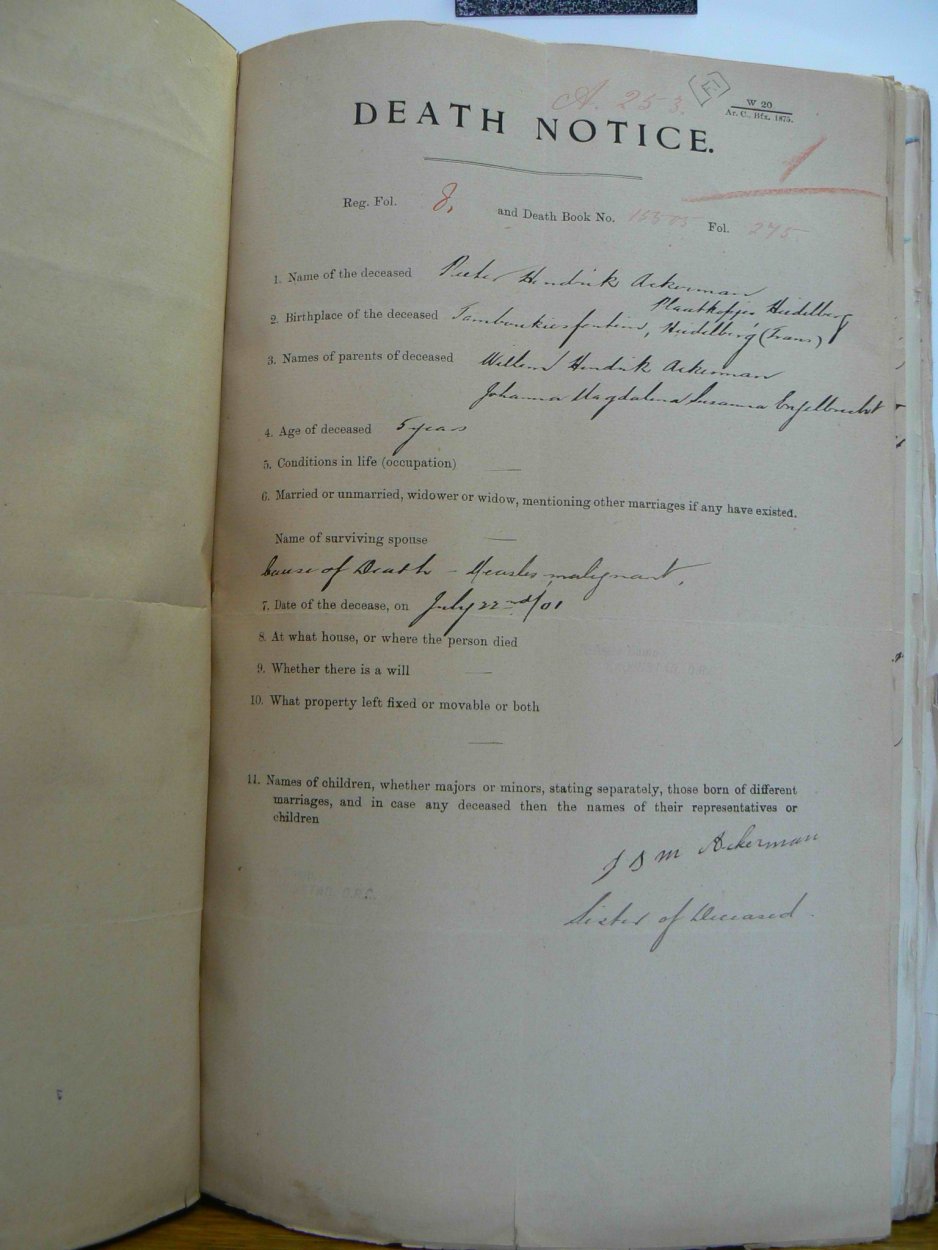 A. 253
F.1
W 20
Ar. C., Bfx. 1875.
DEATH NOTICE.
1
Reg. Fol. J. and Death Book No. Fol. 275
1. Name of the deceased Pieter Hendrik Ackerman
Plaatkopjes Heidelberg
2. Birthplace of the deceased Tamboukiesfontein, Heidelberg (Trans)
3. Names of parents of deceased Willem Hendrik Ackerman
Johanna Magdalena Susanna Engelbrecht
4. Age of deceased 5 years
5. Conditions in life (occupation) —
6. Married or unmarried, widower or widow, mentioning other marriages if any have existed.
Name of surviving spouse —
Cause of Death – Measles malignant.
7. Date of the decease, on July 22nd/01
8. At what house, or where the person died
9. Whether there is a will —
10. What property left fixed or movable or both
—
11. Names of children, whether majors or minors, stating separately, those born of different
marriages, and in case any deceased then the names of their representatives or
children
J S M Ackerman
Sister of Deceased